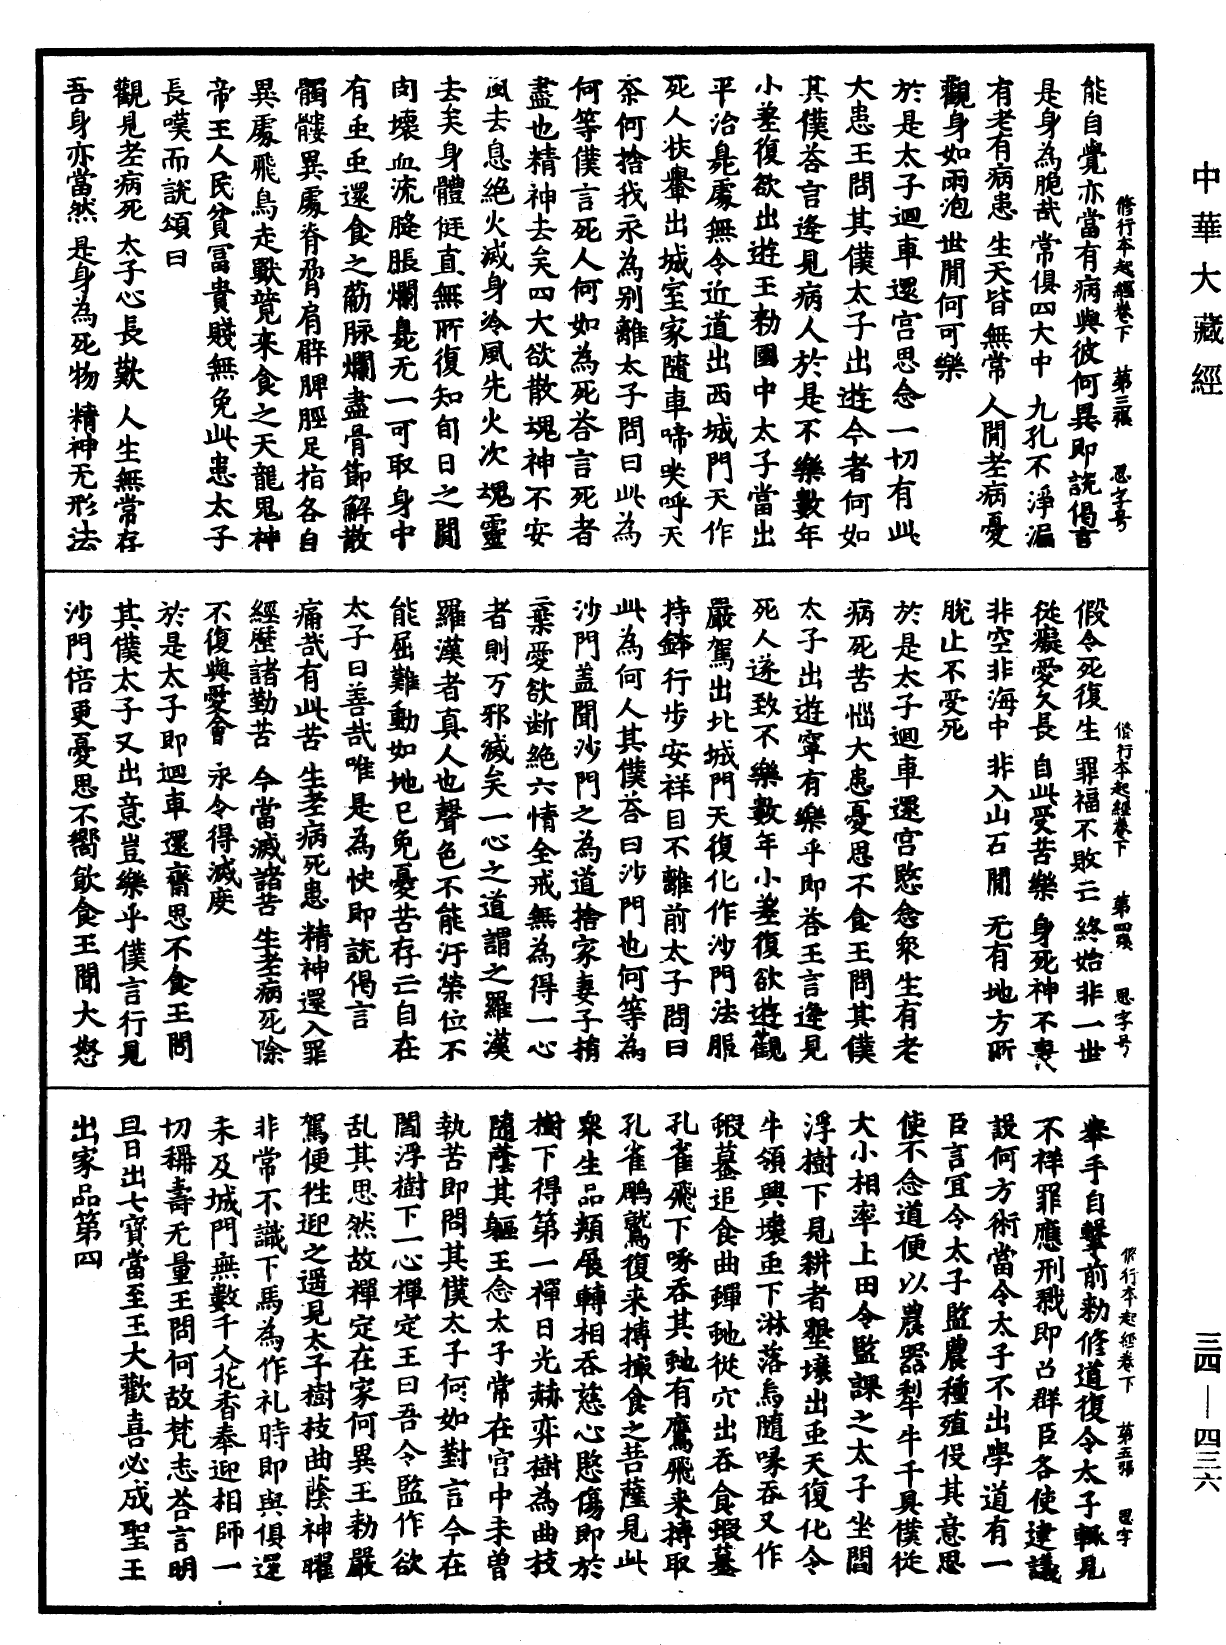 中華大藏經
修行本起經卷下　第三張　思字号
能自覺亦當有病與彼何異即說偈言
是身為脆哉　常俱四大中　九孔不淨漏
有老有病患　生天皆無常　人閒老病憂
觀身如雨泡　世閒何可樂
於是太子迴車還宮思念一切有此
大患王問其僕太子出遊今者何如
其僕荅言逢見病人於是不樂數年
小差復欲出遊王勑國中太子當出
平治臭處無令近道出西城門天作
死人扶轝出城室家隨車啼哭呼天
柰何捨我永為別離太子問曰此為
何等僕言死人何如為死荅言死者
盡也精神去矣四大欲散魂神不安
風去息絕火滅身冷風先火次魂靈
去矣身體侹直無所復知旬日之閒
肉壞血流膖脹爛臭无一可取身中
有虫虫還食之莇脉爛盡骨節解散
髑髏異處脊脅肩臂䏶脛足指各自
異處飛鳥走獸競来食之天龍鬼神
帝王人民貧冨貴賤無免此患太子
長嘆而說頌曰
觀見老病死　太子心長歎　人生無常存
吾身亦當然　是身為死物　精神无形法
修行本起經卷下　第四張　思字号
假令死復生　罪福不敗亡　終始非一世
從癡愛久長　自此受苦樂　身死神不喪
非空非海中　非入山石閒　无有地方所
脫止不受死
於是太子迴車還宮愍念衆生有老
病死苦惱大患憂思不食王問其僕
太子出遊寧有樂乎即荅王言逢見
死人遂致不樂數年小差復欲遊觀
嚴駕出北城門天復化作沙門法服
持鉢行步安祥目不離前太子問曰
此為何人其僕荅曰沙門也何等為
沙門盖聞沙門之為道捨家妻子捐
棄愛欲断絕六情全戒無為得一心
者則万邪滅矣一心之道謂之羅漢
羅漢者真人也聲色不能汙榮位不
能屈難動如地已免憂苦存亡自在
太子曰善哉唯是為快即說偈言
痛哉有此苦　生老病死患　精神還入罪
經歷諸勤苦　今當滅諸苦　生老病死除
不復與愛會　永令得滅度
於是太子即迴車還齋思不食王問
其僕太子又出意豈樂乎僕言行見
沙門倍更憂思不嚮飲食王聞大怒
修行本起經卷下　第五張　思字
舉手自擊前勑修道復令太子輒見
不祥罪應刑戮即召群臣各使建議
設何方術當令太子不出學道有一
臣言宜令太子監農種殖役其意思
使不念道便以農器犁牛千具僕從
大小相率上田令監課之太子坐閻
浮樹下見耕者墾壤出虫天復化令
牛領興壞虫下淋落烏隨啄吞又作
蝦蟇追食曲蟺虵從穴出吞食蝦蟇
孔雀飛下啄吞其虵有鷹飛来搏取
孔雀鵰鷲復来搏撮食之菩薩見此
衆生品類展轉相吞慈心愍傷即於
樹下得第一禪日光赫弈樹為曲枝
隨蔭其軀王念太子常在宫中未曾
執苦即問其僕太子何如對言今在
閻浮樹下一心禪定王曰吾令監作欲
乱其思然故禪定在家何異王勑嚴
駕便往迎之遥見太子樹枝曲蔭神曜
非常不識下馬為作礼時即與俱還
未及城門無數千人花香奉迎相師一
切稱壽无量王問何故梵志荅言明
旦日出七寶當至王大歡喜必成聖王
出家品第四
三四—四三六